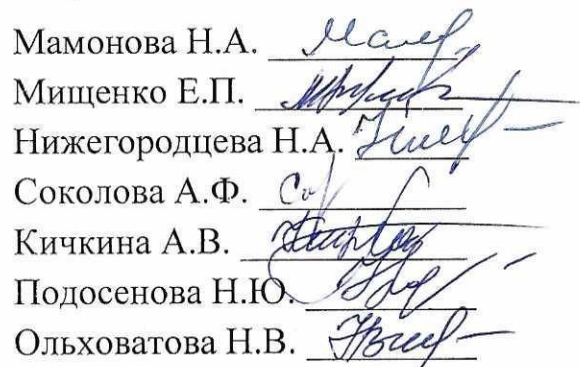 Мамонова Н.А.
Мищенко Е.П.
Нижегородцева Н.А.
Соколова А.Ф.
Кичкина А.В.
Подосенова Н.Ю.
Ольховатова Н.В.